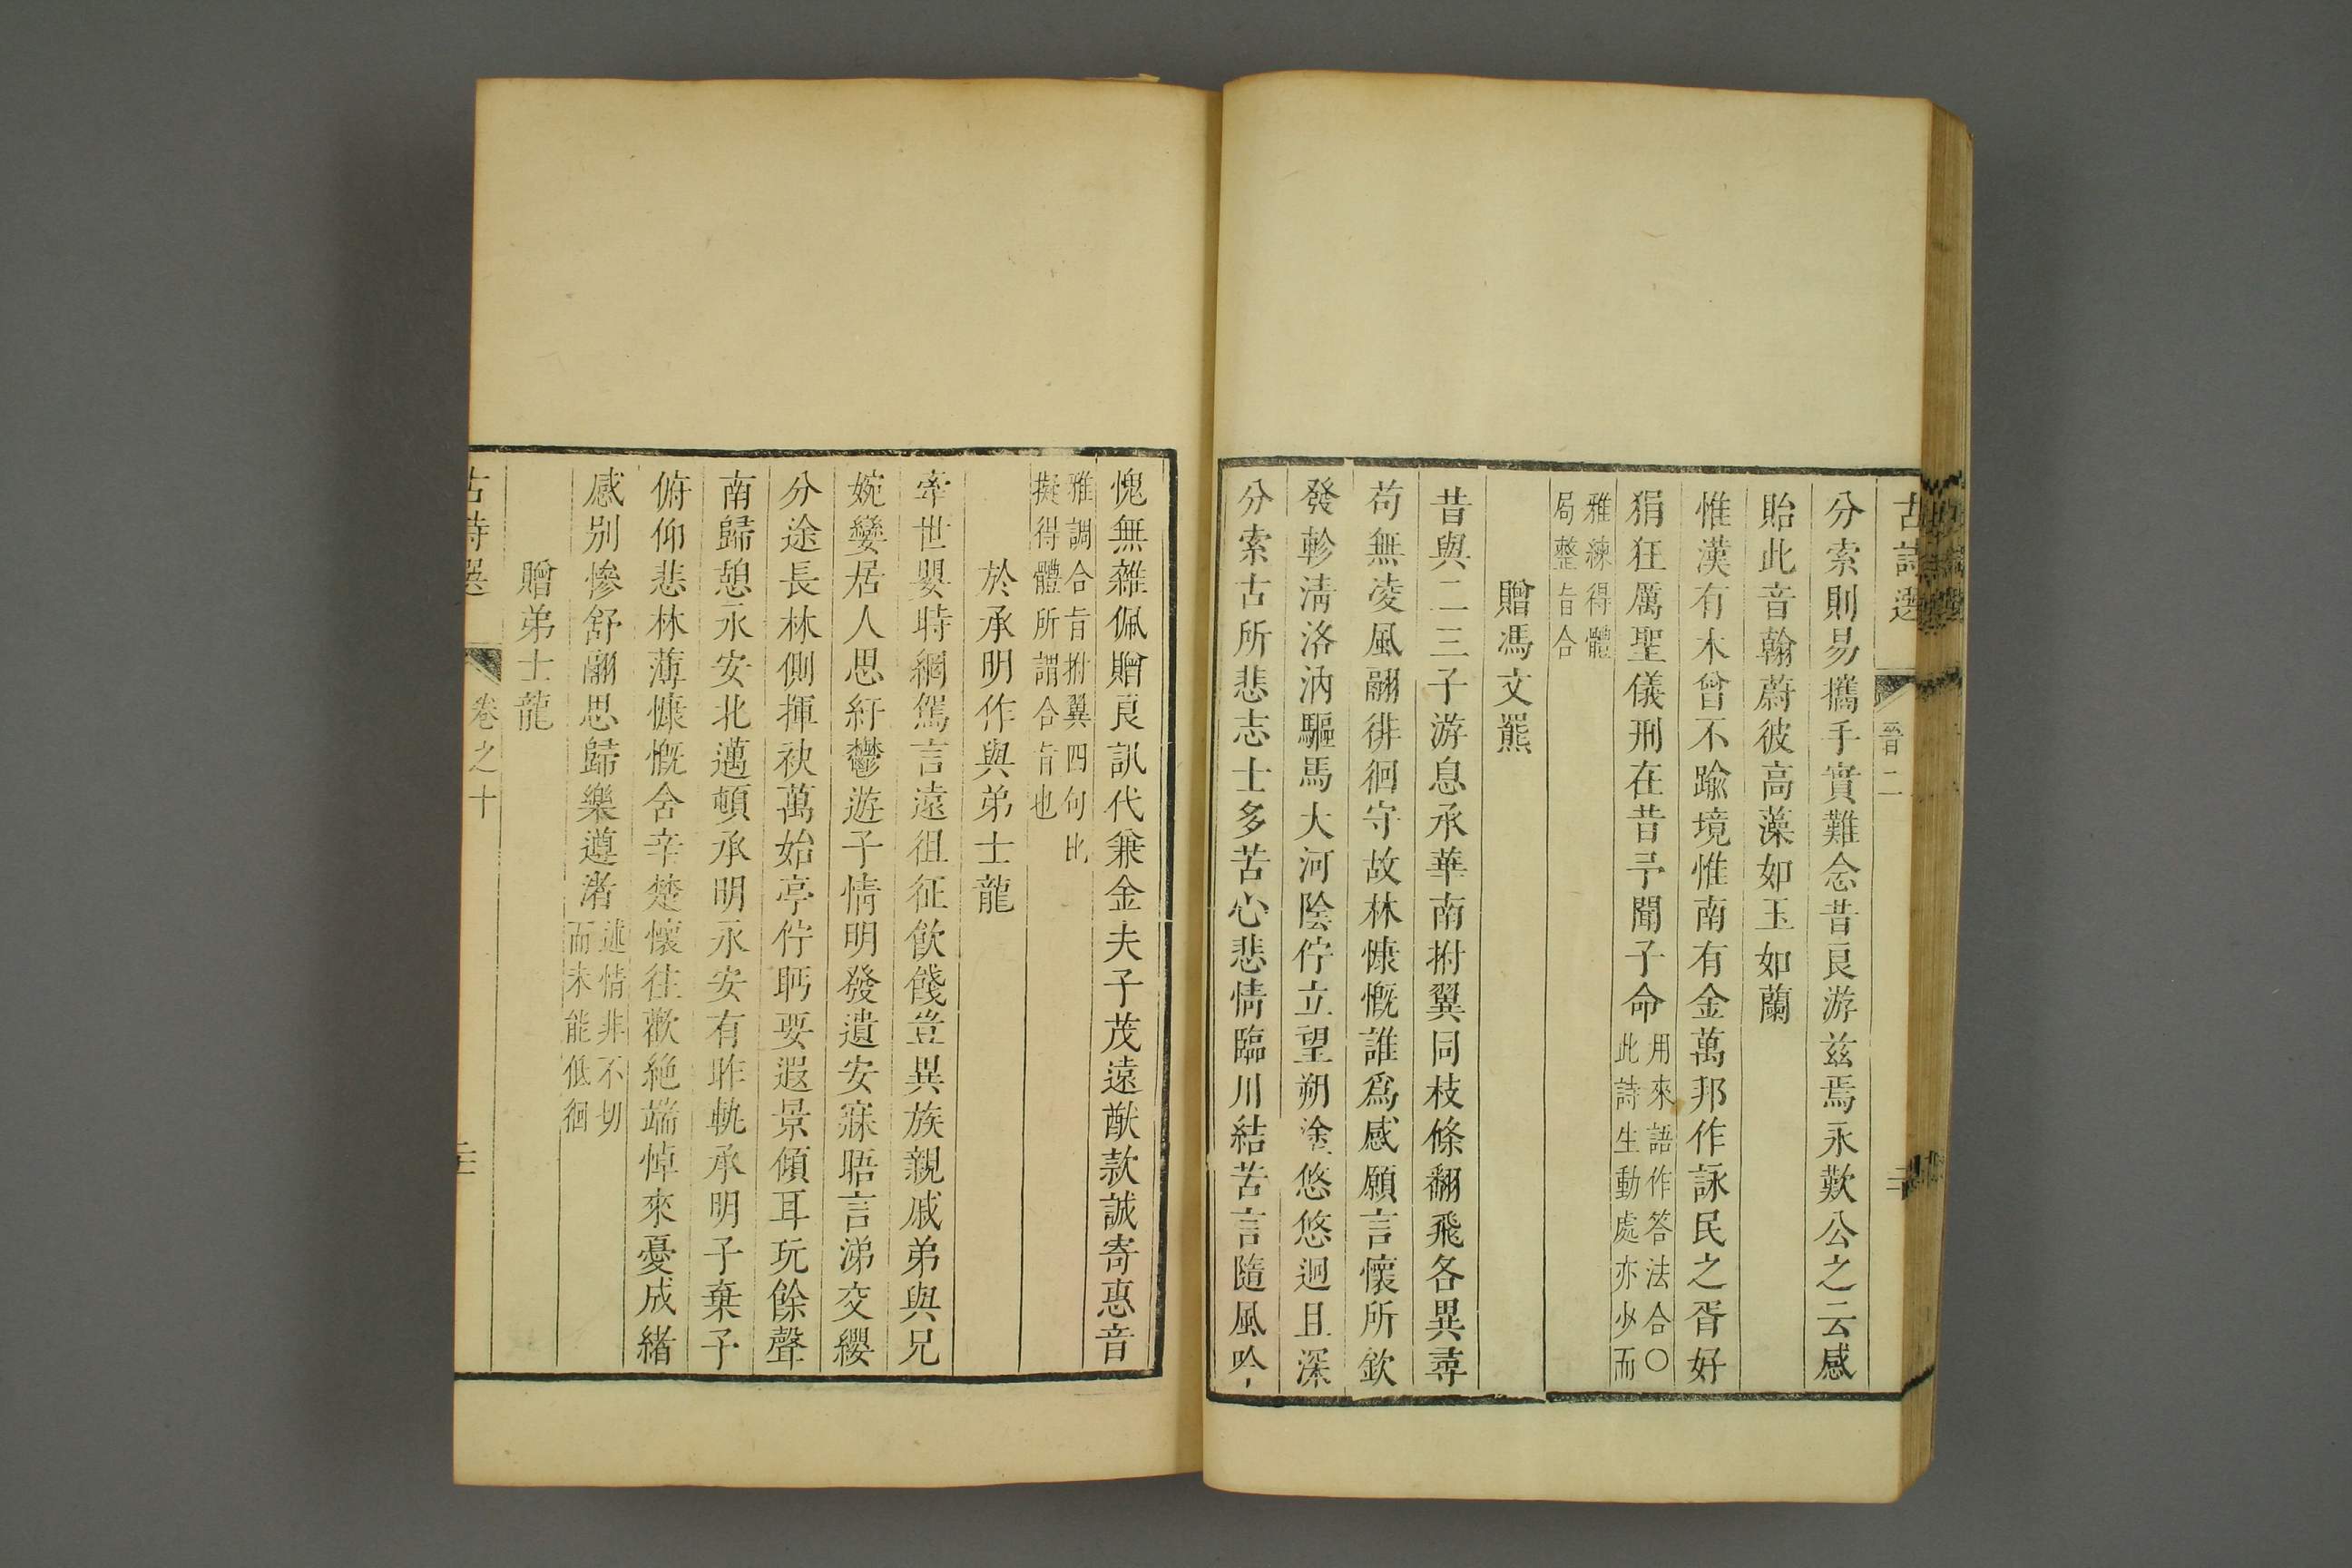 古詩選
晉二
分索則易攜手實難念昔良游兹焉永歎公之云感
貽此音翰蔚彼高藻如玉如蘭
惟漢有木曾不踰境惟南有金萬邦作詠民之胥好
狷狂厲聖儀刑在昔予聞子命
用來語作答法合○
此詩生動處亦少而
雅練得體
局整旨合
贈馮文羆
昔與二三子游息承華南拊翼同枝條翻飛各異尋
苟無凌風翮徘徊守故林慷慨誰爲感願言懷所欽
發軫清洛汭驅馬大河陰佇立望朔塗悠悠迥且深
分索古所悲志士多苦心悲情臨川結苦言隨風吟
愧無雜佩贈良訊代兼金夫子茂遠猷款誠寄惠音
雅調合旨拊翼四句比
擬得體所謂合旨也
於承明作與弟士龍
牽世嬰時網駕言遠徂征飲餞豈異族親戚弟與兄
婉孌居人思紆鬱遊子情明發遺安寐晤言涕交纓
分途長林側揮袂萬始亭佇眄要遐景傾耳玩餘聲
南歸憩永安北邁頓承明永安有昨軌承明子棄予
俯仰悲林薄慷慨含辛楚懷往歡絶端悼來憂成緒
感别慘舒翮思歸樂遵渚
述情非不切
而未能低徊
贈弟士龍
古詩選
卷之十